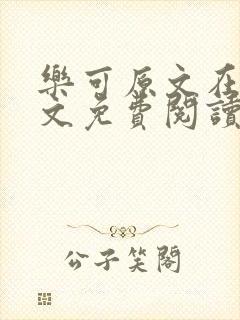 樂可原文在
文免費閱讀
公子笑閣